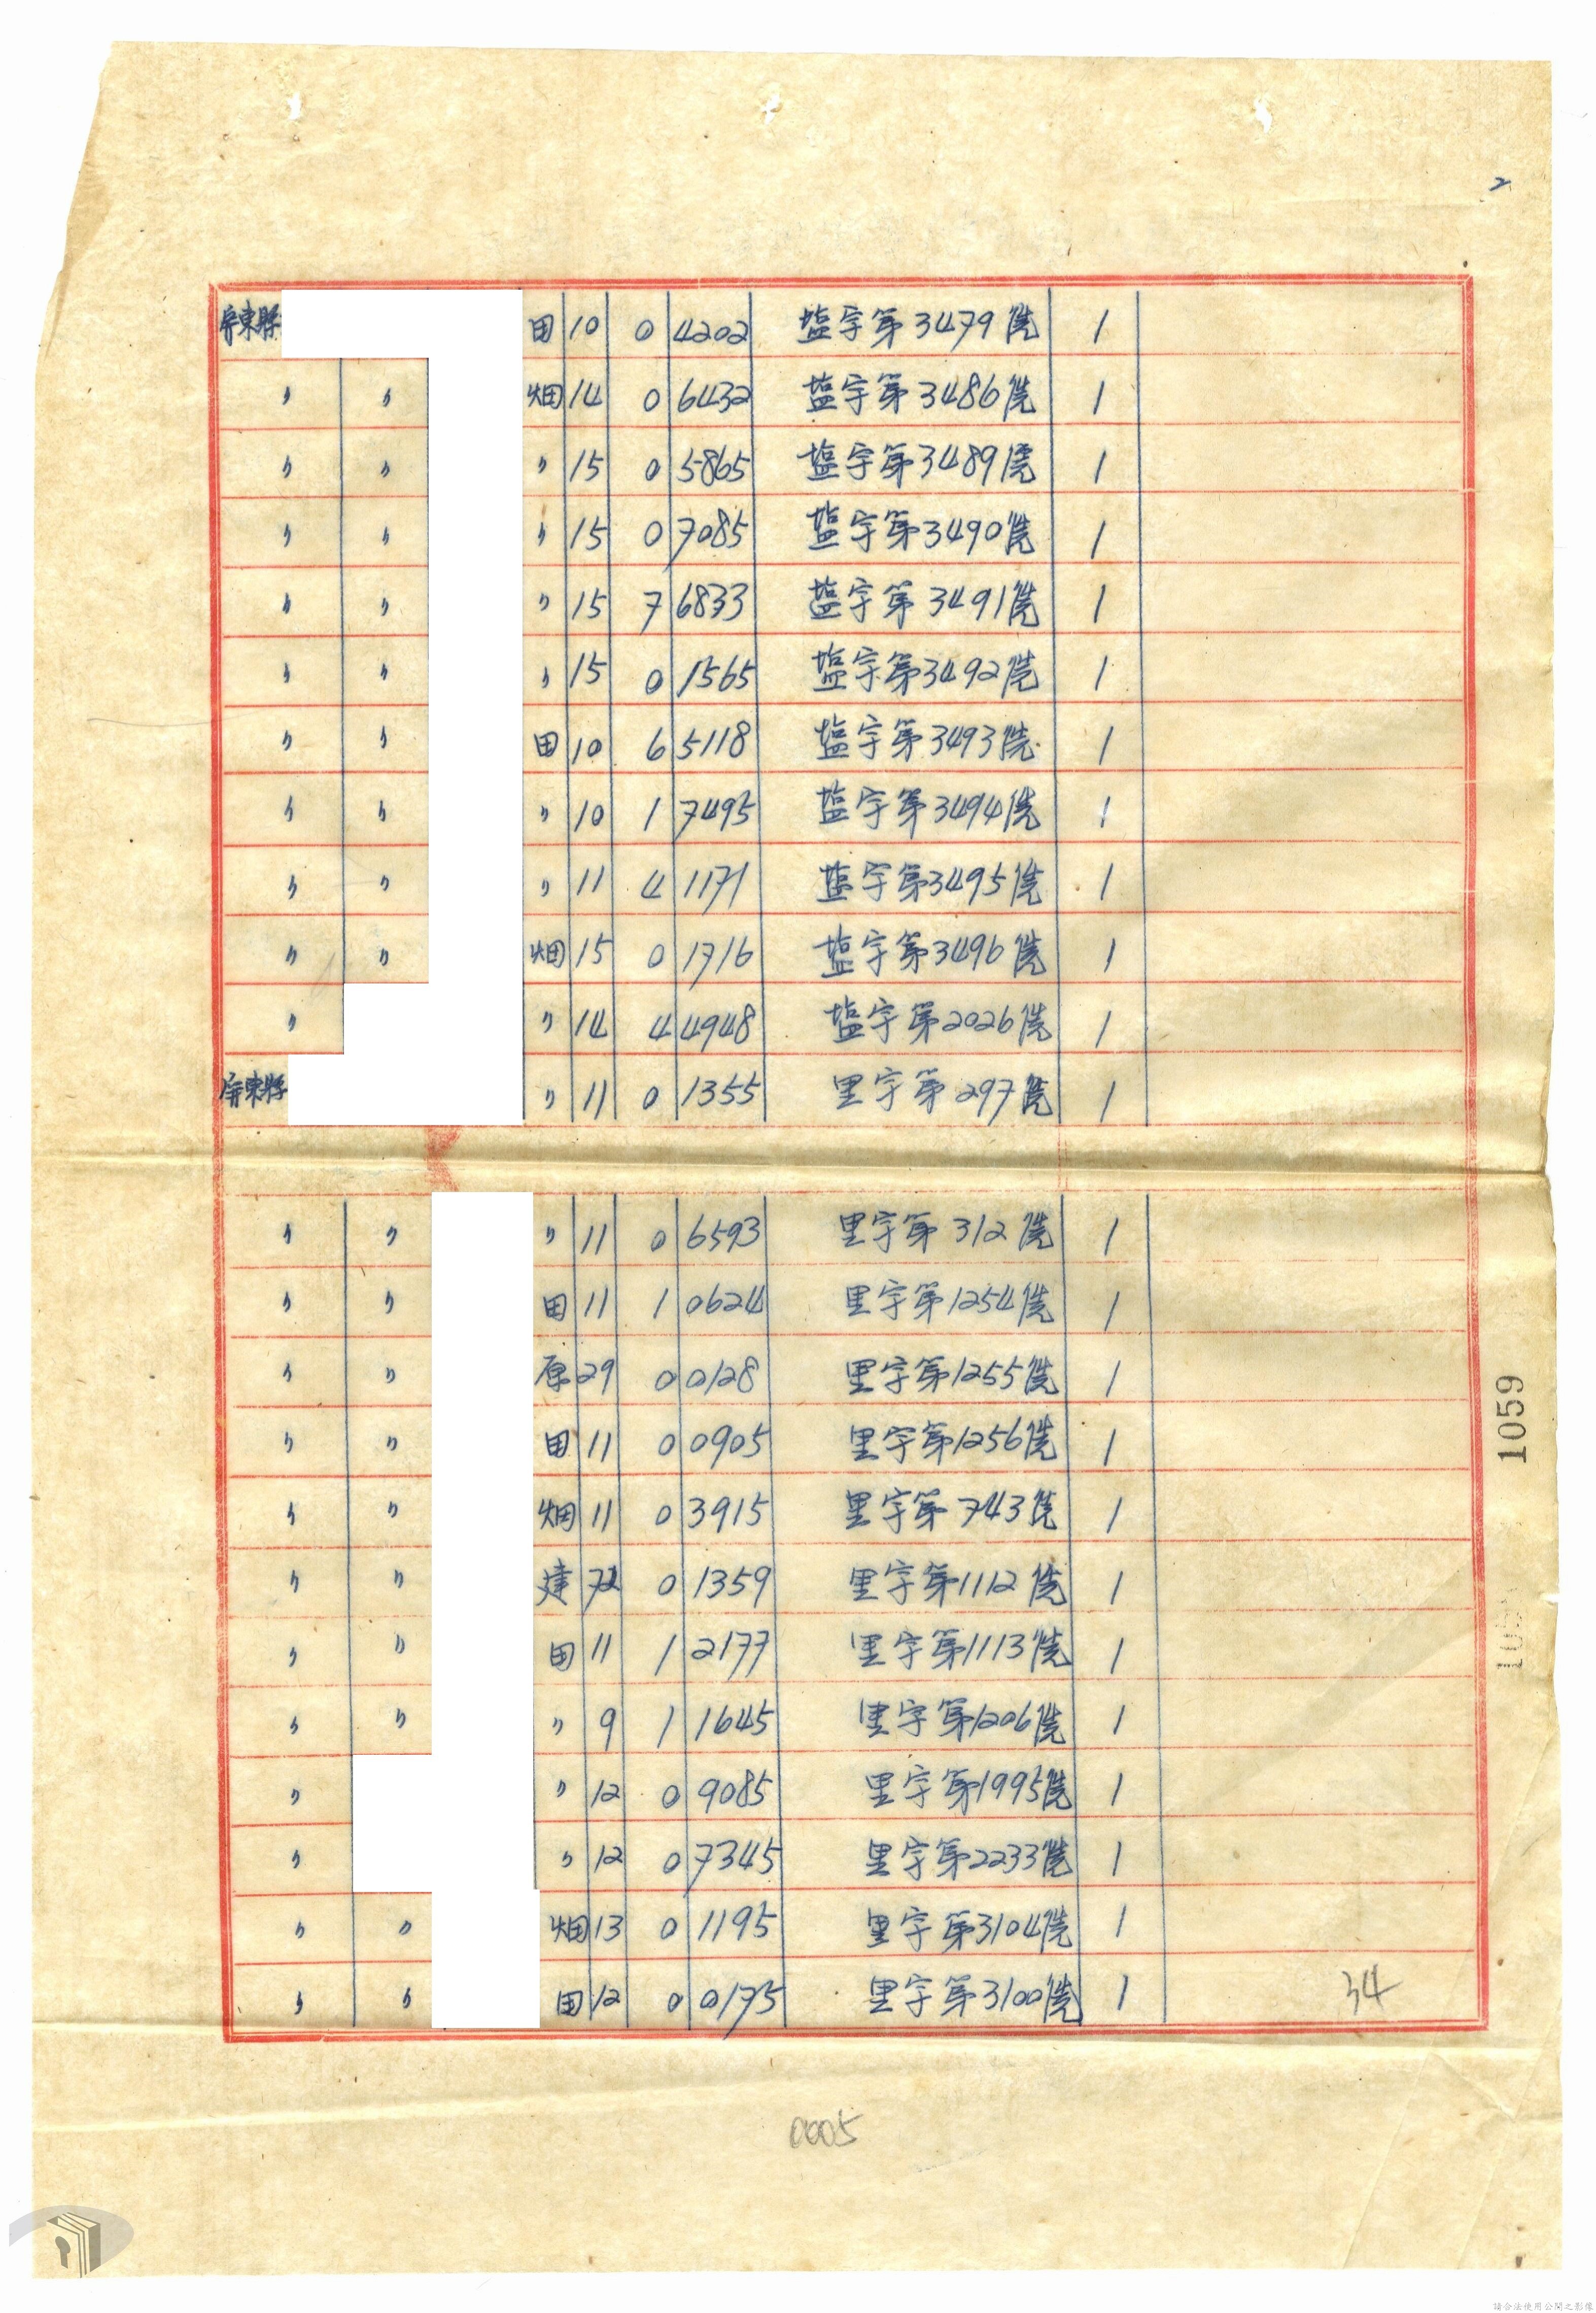 2
屏東縣 田 10 0 4202 塩字第3479號 1
〃 〃 畑 14 0 6432 塩字第3486號 1
〃 〃 〃 15 0 5865 塩字第3489號 1
〃 〃 〃 15 0 7085 塩字第3490號 1
〃 〃 〃 15 7 6833 塩字第3491號 1
〃 〃 〃 15 0 1565 塩字第3492號 1
〃 〃 田 10 6 5118 塩字第3493號 1
〃 〃 〃 10 1 7495 塩字第3494號 1
〃 〃 〃 11 4 1171 塩字第3495號 1
〃 〃 畑 15 0 1716 塩字第3496號 1
〃 〃 14 4 4948 塩字第2026號 1
屏東縣 〃 11 0 1355 里字第297號 1
〃 〃 〃 11 0 6593 里字第312號 1
〃 〃 田 11 1 0624 里字第1254號 1
〃 〃 原 29 0 0128 里字第1255號 1
〃 〃 田 11 0 0905 里字第1256號 1
〃 〃 畑 11 0 3915 里字第743號 1
〃 〃 建 72 0 1359 里字第1112號 1
〃 〃 田 11 1 2177 里字第1113號 1
〃 〃 〃 9 1 1645 里字第1206號 1
〃 〃 12 0 9085 里字第1995號 1
〃 〃 12 0 7345 里字第2233號 1
〃 〃 畑 13 0 1195 里字第3104號 1
〃 〃 田 12 0 0175 里字第3100號 1
34
1059
0005
請合法使用公開之影像